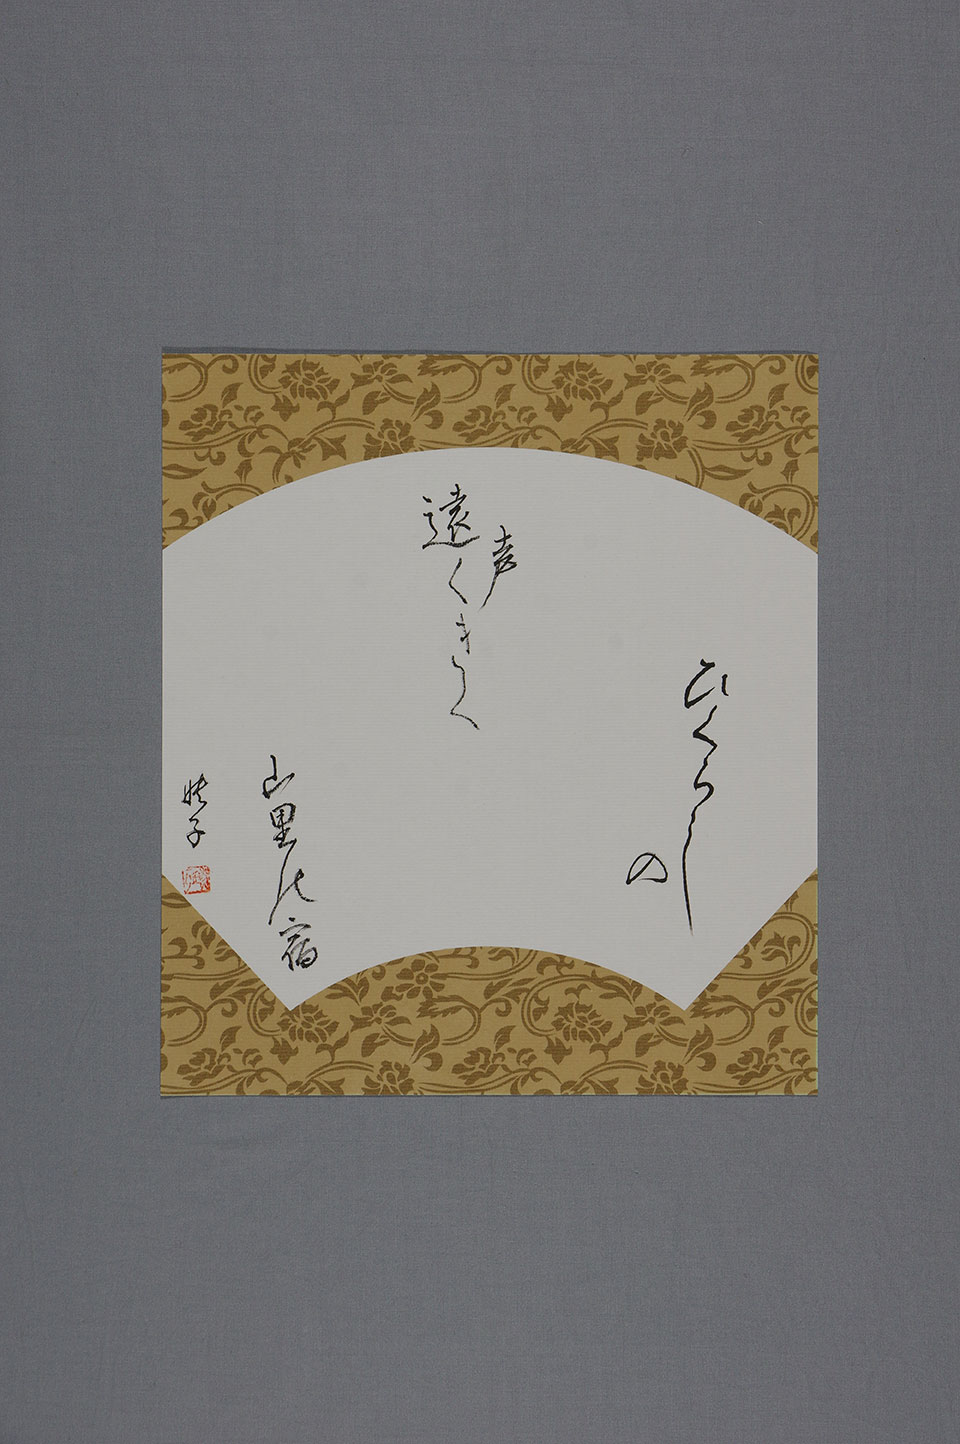 ひくらしの
声
遠くきく
山里の宿